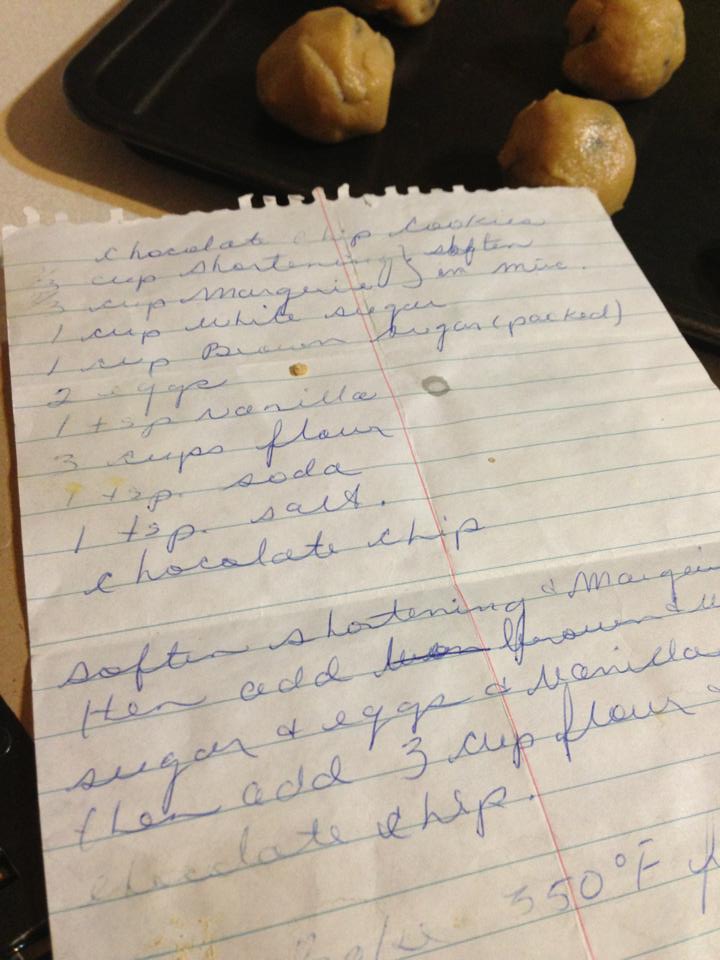 Chocolate Chip Cookies
cup Shortening } soften
cup Margerine } in mic.
1 cup white sugar
1 cup Brown sugar (packed)
2 eggs
1 tsp vanilla
3 cups flour
1 tsp. soda
1 tsp. salt.
chocolate chip
soften shortening & Margerin
then add brown &
sugar & eggs & Vanilla
then add 3 cup flour &
chocolate chip.
Bake 350°F